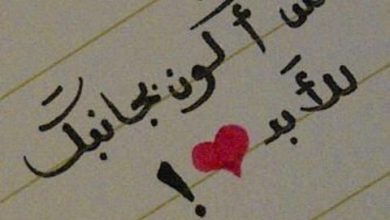 أكون بجانبكَ
للأَبد !